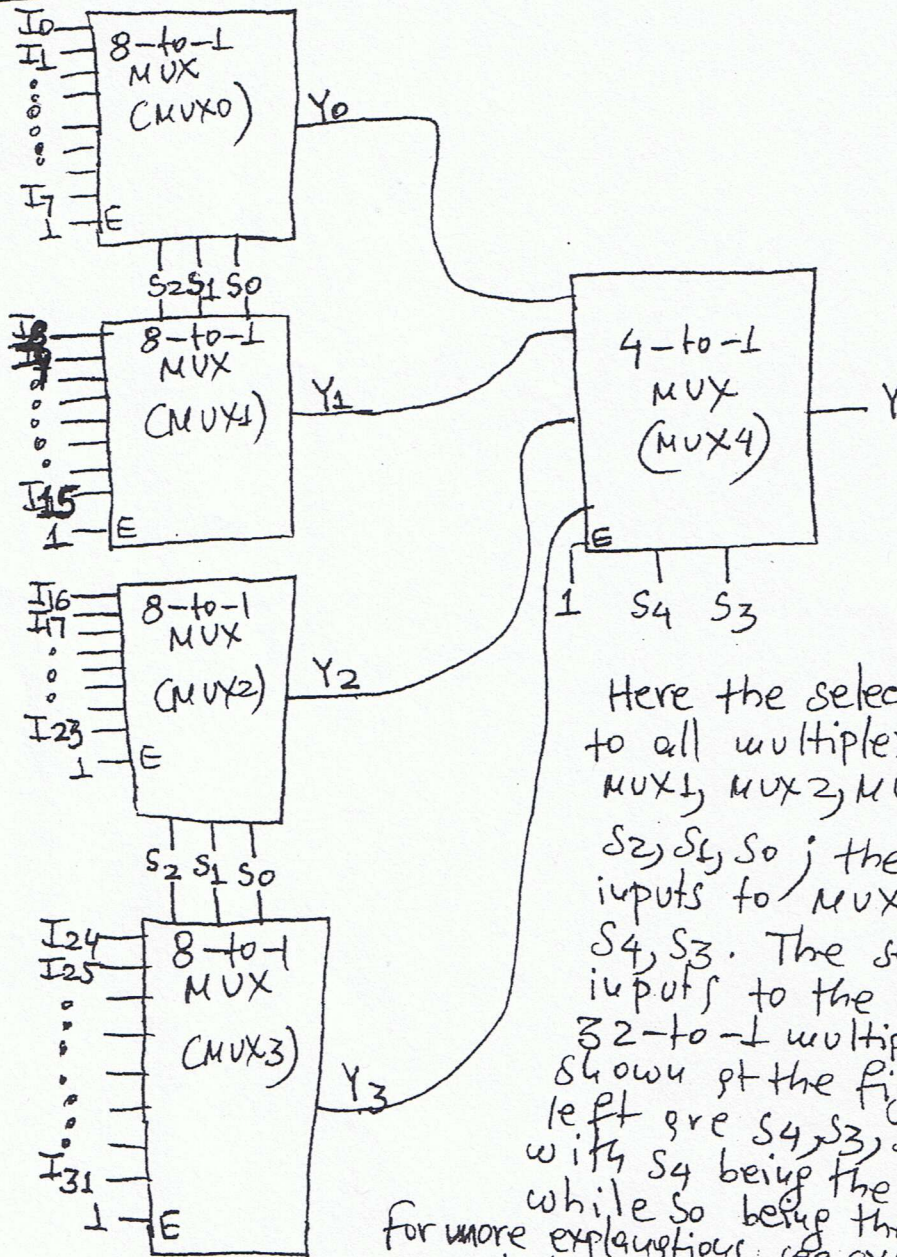 I0
I1
I7
1 E
8-to-1
MUX
(MUX0)
Y0
S2 S1 S0
I15
1 E
8-to-1
MUX
(MUX1)
Y1
I16
I17
I23
1 E
8-to-1
MUX
(MUX2)
Y2
S2 S1 S0
I24
I25
I31
1 E
8-to-1
MUX
(MUX3)
Y3
4-to-1
MUX
(MUX4)
Y
E
1 S4 S3
Here the selec
to all multiple
MUX1, MUX2, MU
S2, S1, S0; the
inputs to MUX
S4, S3. The s
inputs to the
32-to-1 multip
shown at the fig
left are S4, S3,
with S4 being the
while S0 being th
for more explanations